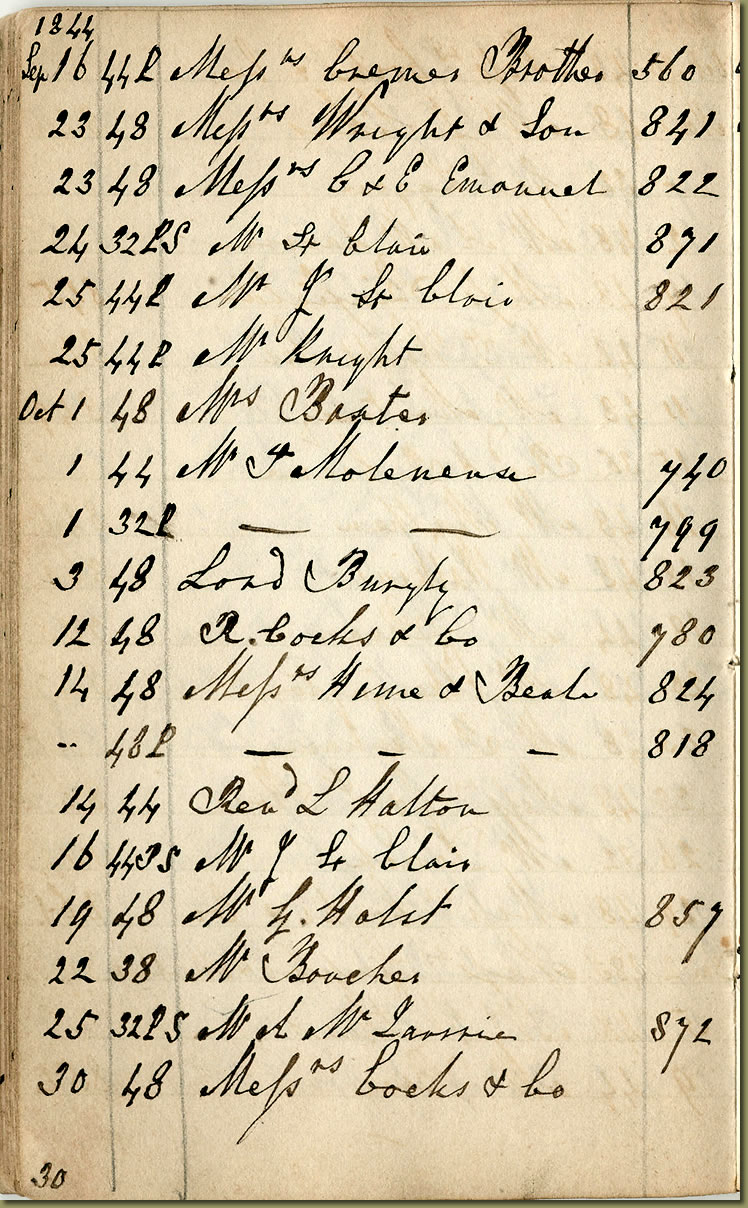 1844
Sep 16 44P Messrs Cremer Brother 560
23 48 Messrs Wright & Son 841
23 48 Messrs C & E Emanuel 822
24 32PS Mr St Clair 871
25 44P Mr J St Clair 821
25 44P Mr Knight
Oct 1 48 Mrs Baxter
1 44 Mr 740
1 32P — — 799
3 48 Lord Burghy 823
12 48 R. Cocks & Co 780
14 48 Messrs Hime & Beale 824
" 48P — — — 818
14 44 Revd L Halton
16 44PS Mr J St Clair
19 48 Mr G. Holst 857
22 38 Mr Boucher
25 32PS Mr A Mc 872
30 48 Messrs Cocks & Co
30